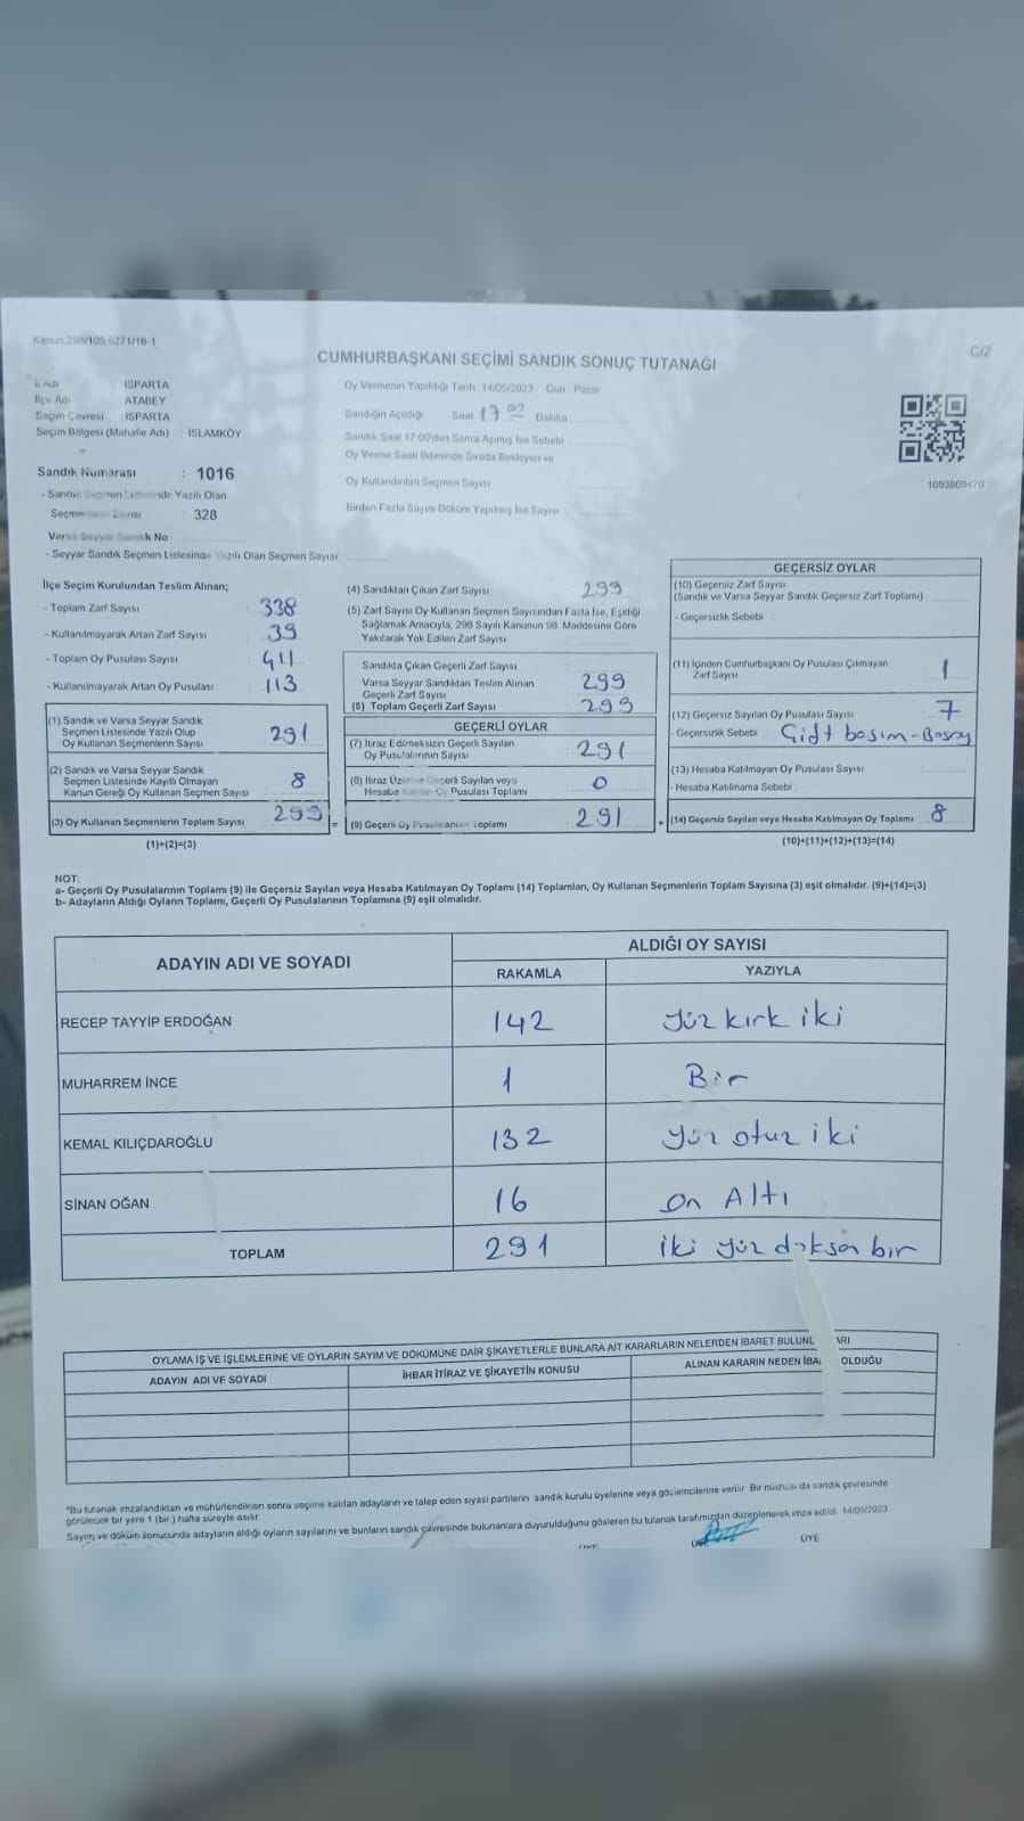 Kanun 298/105,6271/18-1
CUMHURBAŞKANI SEÇİMİ SANDIK SONUÇ TUTANAĞI
İl Adı ISPARTA
İlçe Adı ATABEY
Seçim Çevresi : ISPARTA
Seçim Bölgesi (Mahalle Adı) : İSLAMKÖY
Sandık Numarası : 1016
- Sandık Seçmen Listesinde Yazılı Olan
Seçmen Sayısı : 328
Varsa Seyyar Sandık No
- Seyyar Sandık Seçmen Listesinde Yazılı Olan Seçmen Sayısı
Oy Vermenin Yapıldığı Tarih: 14/05/2023 Gün: Pazar
Sandığın Açıldığı Saat 17 00 Dakika
Sandık Saat 17:00'den Sonra Açılmış İse Sebebi
Oy Verme Saati Bitiminde Sırada Bekleyen ve
Oy Kullandırılan Seçmen Sayısı
Birden Fazla Sayım Döküm Yapılmış İse Sayısı
İlçe Seçim Kurulundan Teslim Alınan;
- Toplam Zarf Sayısı 338
- Kullanılmayarak Artan Zarf Sayısı 39
- Toplam Oy Pusulası Sayısı 411
- Kullanılmayarak Artan Oy Pusulası 113
(1) Sandık ve Varsa Seyyar Sandık
Seçmen Listesinde Yazılı Olup
Oy Kullanan Seçmenlerin Sayısı 291
(2) Sandık ve Varsa Seyyar Sandık
Seçmen Listesinde Kayıtlı Olmayan
Kanun Gereği Oy Kullanan Seçmen Sayısı 8
(3) Oy Kullanan Seçmenlerin Toplam Sayısı 299
(1)+(2)=(3)
(4) Sandıktan Çıkan Zarf Sayısı 299
(5) Zarf Sayısı Oy Kullanan Seçmen Sayısından Fazla İse, Eşitliği
Sağlamak Amacıyla, 298 Sayılı Kanunun 98. Maddesine Göre
Yakılarak Yok Edilen Zarf Sayısı
Sandıkta Çıkan Geçerli Zarf Sayısı
Varsa Seyyar Sandıktan Teslim Alınan
Geçerli Zarf Sayısı 299
(6) Toplam Geçerli Zarf Sayısı 299
GEÇERLİ OYLAR
(7) İtiraz Edilmeksizin Geçerli Sayılan
Oy Pusulalarının Sayısı 291
(8) İtiraz Üzerine Geçerli Sayılan veya
Hesaba Katılan Oy Pusulası Toplamı 0
(9) Geçerli Oy Pusulalarının Toplamı 291
GEÇERSİZ OYLAR
(10) Geçersiz Zarf Sayısı
(Sandık ve Varsa Seyyar Sandık Geçersiz Zarf Toplamı)
- Geçersizlik Sebebi
(11) İçinden Cumhurbaşkanı Oy Pusulası Çıkmayan
Zarf Sayısı 1
(12) Geçersiz Sayılan Oy Pusulası Sayısı 7
- Geçersizlik Sebebi Çift basım -
(13) Hesaba Katılmayan Oy Pusulası Sayısı
- Hesaba Katılmama Sebebi
(14) Geçersiz Sayılan veya Hesaba Katılmayan Oy Toplamı 8
(10)+(11)+(12)+(13)=(14)
NOT:
a- Geçerli Oy Pusulalarının Toplamı (9) ile Geçersiz Sayılan veya Hesaba Katılmayan Oy Toplamı (14) Toplamları, Oy Kullanan Seçmenlerin Toplam Sayısına (3) eşit olmalıdır. (9)+(14)=(3)
b- Adayların Aldığı Oyların Toplamı, Geçerli Oy Pusulalarının Toplamına (9) eşit olmalıdır.
ADAYIN ADI VE SOYADI
ALDIĞI OY SAYISI
RAKAMLA YAZIYLA
RECEP TAYYİP ERDOĞAN 142 Yüz kırk iki
MUHARREM İNCE 1 Bir
KEMAL KILIÇDAROĞLU 132 Yüz otuz iki
SİNAN OĞAN 16 On Altı
TOPLAM 291 iki yüz doksan bir
OYLAMA İŞ VE İŞLEMLERİNE VE OYLARIN SAYIM VE DÖKÜMÜNE DAİR ŞİKAYETLERLE BUNLARA AİT KARARLARIN NELERDEN İBARET BULUNDUKLARI
ADAYIN ADI VE SOYADI İHBAR İTİRAZ VE ŞİKAYETİN KONUSU ALINAN KARARIN NEDEN İBARET OLDUĞU
"Bu tutanak imzalandıktan ve mühürlendikten sonra seçime katılan adayların ve talep eden siyasi partilerin sandık kurulu üyelerine veya gözlemcilerine verilir. Bir nüshası da sandık çevresinde
görülecek bir yere 1 (bir) hafta süreyle asılır.
Sayım ve döküm sonucunda adayların aldığı oyların sayılarını ve bunların sandık çevresinde bulunanlara duyurulduğunu gösteren bu tutanak tarafımızdan düzenlenerek imza edildi. 14/05/2023
ÜYE